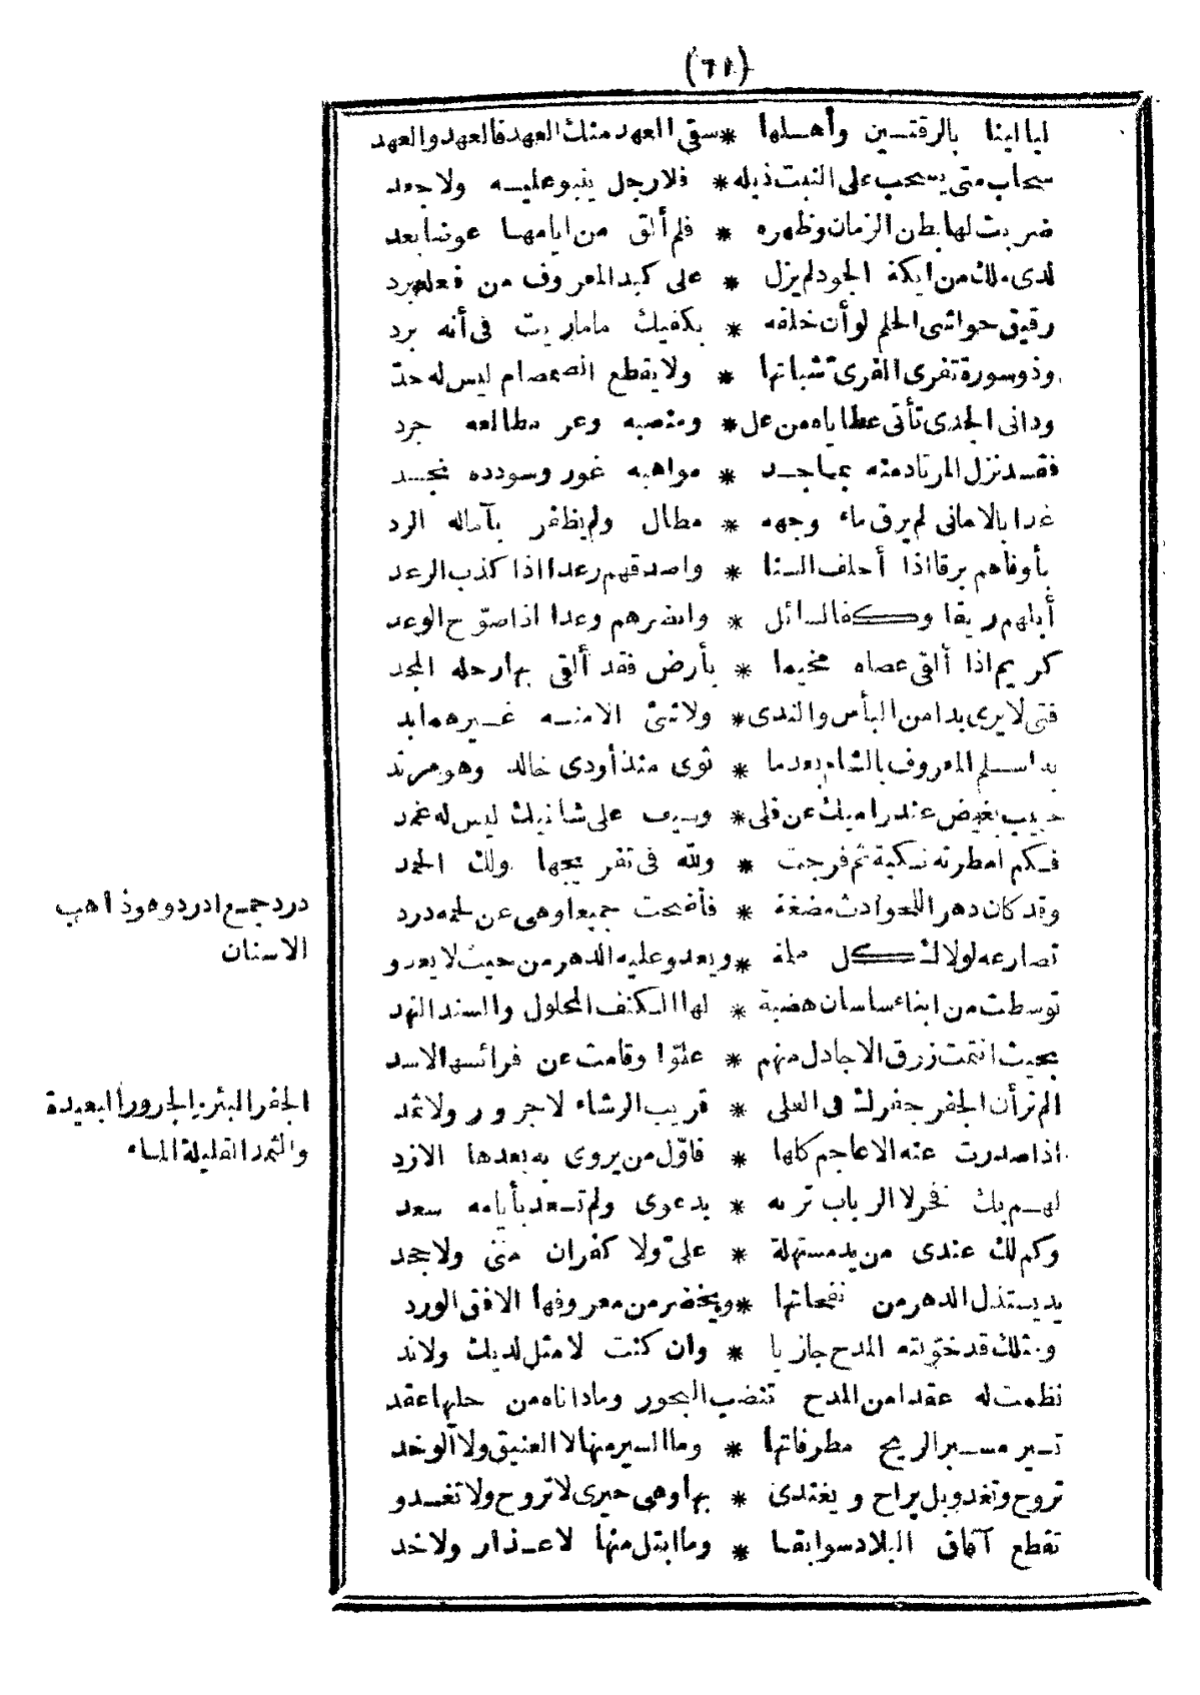 (٦١)
ليالينا بالرقتين وأهلها * سقى العهد منك العهد فالعهد والعهد
سحاب متى يسحب على النبت ذيله * فلا رجل ينبو عليه ولا جعد
ضربت لها بطن الزمان وظهره * فلم ألق من أيامها عوضا بعد
لدى ملك من ايكة الجود لم يزل * على كبد المعروف من فعله برد
رقيق حواشي الحلم لو أن خلقه * بكفيك ما ماريت في أنه برد
وذو سورة تفري الفري شباتها * ولا يقطع الصمصام ليس له حدّ
وداني الجدى تأتي عطاياه من عل * ومنصبه وعر مطالعه جرد
فقد نزل المرتاد منه بماجد * مواهبه غور وسودده نجد
غدا بالاماني لم يرق ماء وجهه * مطال ولم يظفر بآماله الرد
بأوفاهم برقا اذا أخلف السنا * واصدقهم رعدا اذا كذب الرعد
أبلهم ريقا وكفا لسائل * وانضرهم وعدا اذا صوّح الوعد
كريم اذا ألقى عصاه مخيما * بأرض فقد ألقى بها رحله المجد
فتى لا يرى بدا من البأس والندى * ولا شئ الا منه غيرهما بد
بدا سلم المعروف بالشام بعدما * ثوى منذ أودى خالد وهو مرتد
حبيب بغيض عند راميك عن قلى * وسيف على شانيك ليس له غمد
فكم امطرته نكبة ثم فرجت * ولله في تفريجها ولك الحمد
وقد كان دهرا للحوادث مضغة * فأضحت جميعا وهي عن لحمه درد
درد جمع ادرد وهو ذاهب
الاسنان
تصارعه لولاك كل ملمة * ويعدو عليه الدهر من حيث لا يعدو
توسطت من ابناء ساسان هضبة * لها الكنف المحلول والسند النهد
بحيث انتمت زرق الاجادل منهم * علوّا وقامت عن فرائسها الاسد
الم تر أن الجفر جفرك في العلى * قريب الرشاء لا جرور ولا ثمد
الجفر البئر والجرور البعيدة
والثمد القليلة الماء
اذا صدرت عنه الاعاجم كلها * فاوّل من يروى به بعدها الازد
لهم بك فخر لا الرباب تربه * بدعوى ولم تسعد بأيامه سعد
وكم لك عندي من يد مستهلة * عليّ ولا كفران مني ولا جحد
يد يستذل الدهر من نفحاتها * ويخضر من معروفها الافق الورد
ومثلك قد خوّلته المدح جازيا * وان كنت لا مثل لديك ولا ند
نظمت له عقدا من المدح تنضب البحور وما داناه من حليها عقد
تسير مسير الريح مطرفاتها * وما السير منها لا العنيق ولا الوخد
تروح وتغدو بل يراح ويغتدى * بها وهي حيرى لا تروح ولا تغدو
تقطع آفاق البلاد سوابقا * وما ابتل منها لا عذار ولا خد